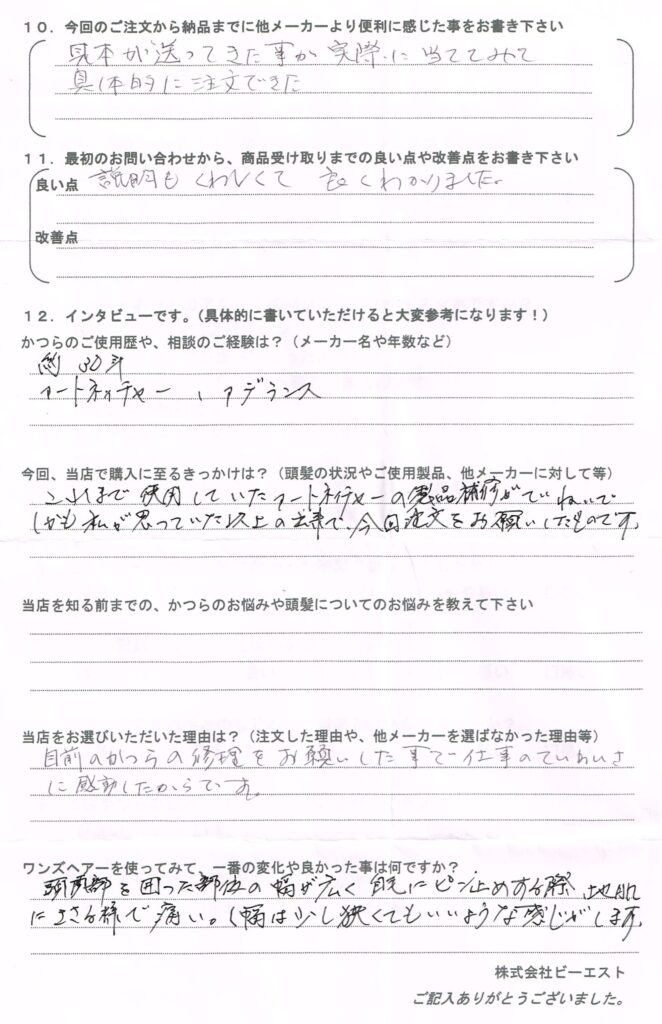 10．今回のご注文から納品までに他メーカーより便利に感じた事をお書き下さい
見本が送ってきた事が実際に当ててみて
具体的に注文できた
11．最初のお問い合わせから、商品受け取りまでの良い点や改善点をお書き下さい
良い点 説明もくわしくて 良くわかりました。
改善点
12．インタビューです。（具体的に書いていただけると大変参考になります！）
かつらのご使用歴や、相談のご経験は？（メーカー名や年数など）
約 30年
アートネイチャー、アデランス
今回、当店で購入に至るきっかけは？（頭髪の状況やご使用製品、他メーカーに対して等）
これまで使用していたアートネイチャーの製品補修がていねいで
しかも私が思っていた以上の出来で、今回注文をお願いしたものです。
当店を知る前までの、かつらのお悩みや頭髪についてのお悩みを教えて下さい
当店をお選びいただいた理由は？（注文した理由や、他メーカーを選ばなかった理由等）
自前のかつらの修理をお願いした事で仕事のていねいさ
に感動したからです。
ワンズヘアーを使ってみて、一番の変化や良かった事は何ですか？
を囲った部位の幅が広く ピン止めする際、地肌
にささる様で痛い。（幅は少し狭くてもいいような感じがします。
株式会社ビーエスト
ご記入ありがとうございました。